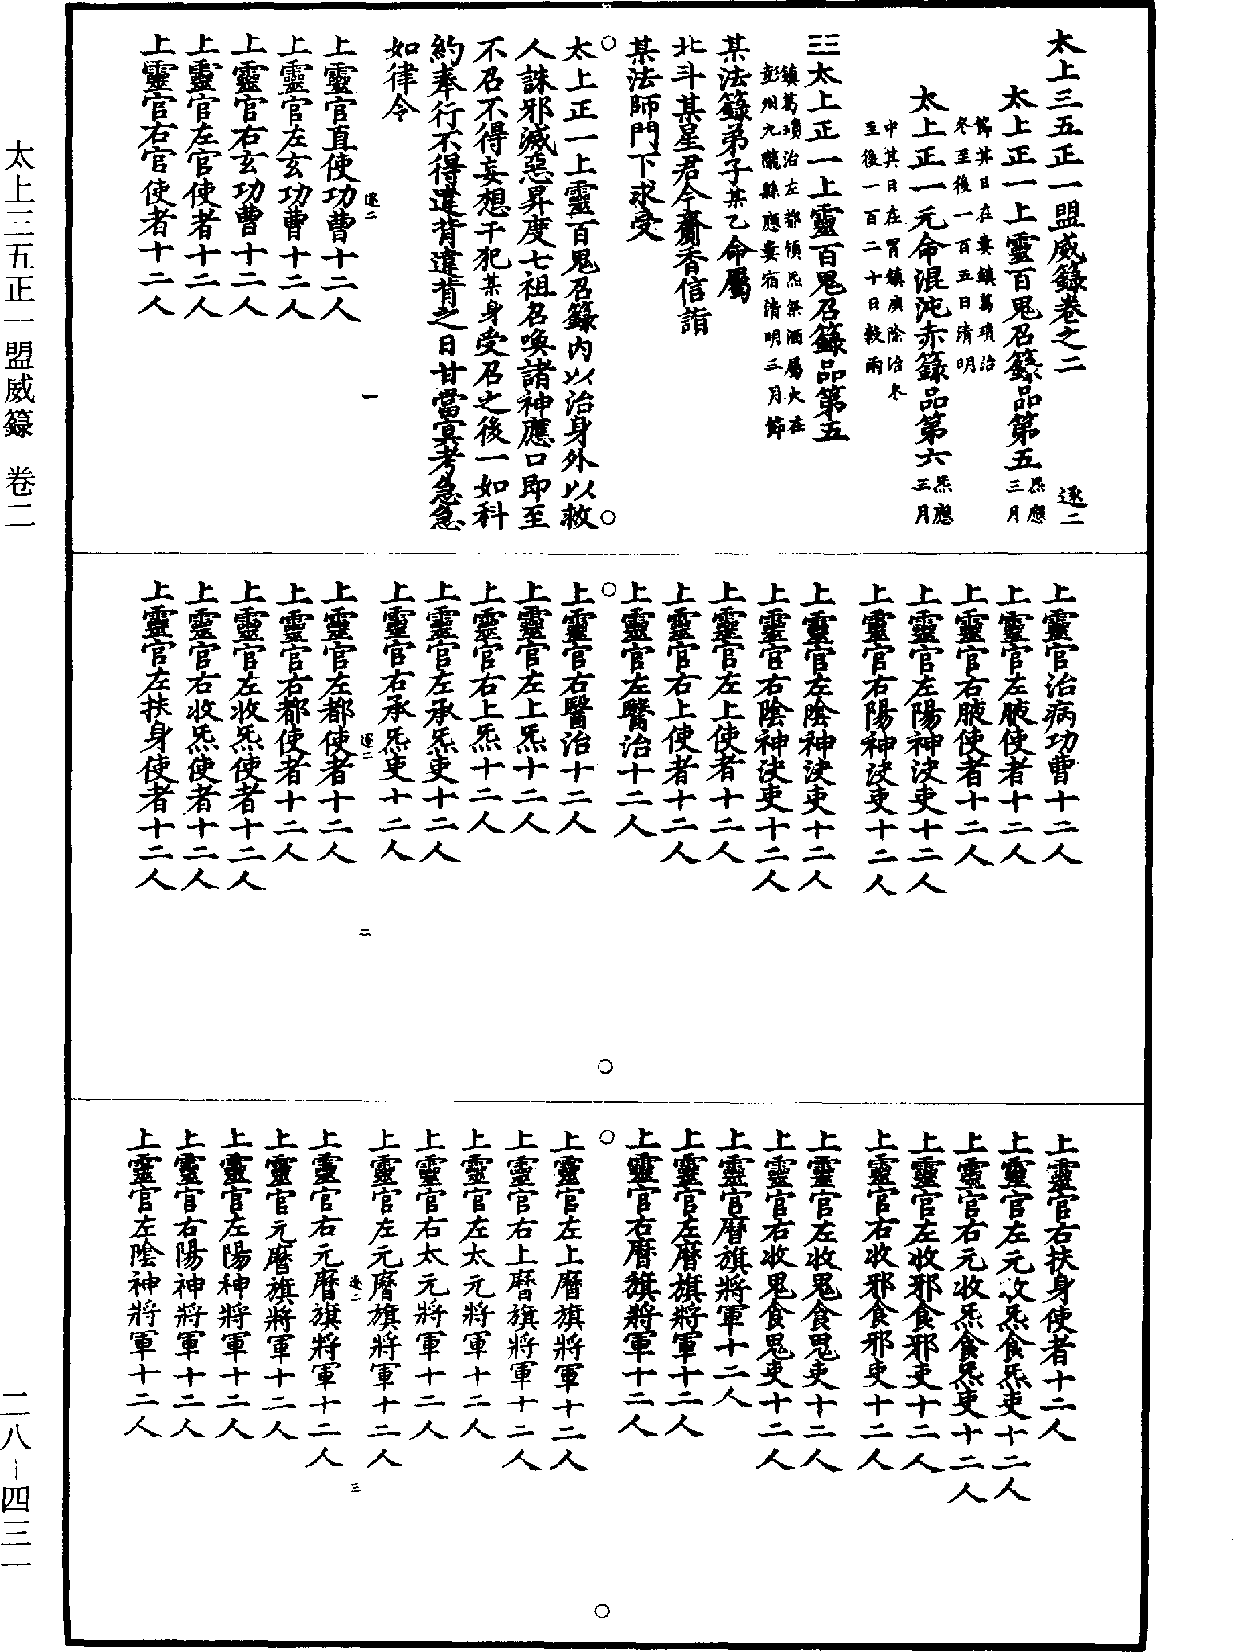 太上三五正一盟威籙卷之二 逐二
太上正一上靈百鬼召籙品第五 炁應三月
節其日在婁鎮葛璝治
冬至後一百五日清明
太上正一元命混沌赤籙品第六 炁應三月
中其日在胃鎮庚除治冬
至後一百二十日穀雨
三三太上正一上靈百鬼召籙品第五
鎮葛璝治左都領炁祭酒屬火在
彭州九隴縣應婁宿清明三月節
某法籙弟子某乙命屬
北斗某星君今齎香信詣
某法師門下求受
太上正一上靈百鬼召籙內以治身外以救
人誅邪滅惡昇度七祖召喚諸神應口即至
不召不得妄想干犯某身受召之後一如科
約奉行不得違背違背之日甘當冥考急急
如律令
逐二 一
上靈官直使功曹十二人
上靈官左玄功曹十二人
上靈官右玄功曹十二人
上靈官左官使者十二人
上靈官右官使者十二人
上靈官治病功曹十二人
上靈官左腋使者十二人
上靈官右腋使者十二人
上靈官左陽神決吏十二人
上靈官右陽神決吏十二人
上靈官左陰神決吏十二人
上靈官右陰神決吏十二人
上靈官左上使者十二人
上靈官右上使者十二人
上靈官左醫治十二人
上靈官右醫治十二人
上靈官左上炁十二人
上靈官右上炁十二人
上靈官左承炁吏十二人
上靈官右承炁吏十二人
逐二 二
上靈官左都使者十二人
上靈官右都使者十二人
上靈官左收炁使者十二人
上靈官右收炁使者十二人
上靈官左扶身使者十二人
上靈官右扶身使者十二人
上靈官左元收炁食炁吏十二人
上靈官右元收炁食炁吏十二人
上靈官左收邪食邪吏十二人
上靈官右收邪食邪吏十二人
上靈官左收鬼食鬼吏十二人
上靈官右收鬼食鬼吏十二人
上靈官曆旗將軍十二人
上靈官左曆旗將軍十二人
上靈官右曆旗將軍十二人
上靈官左上曆旗將軍十二人
上靈官右上曆旗將軍十二人
上靈官左太元將軍十二人
上靈官右太元將軍十二人
上靈官左元曆旗將軍十二人
逐二 三
上靈官右元曆旗將軍十二人
上靈官元曆旗將軍十二人
上靈官左陽神將軍十二人
上靈官右陽神將軍十二人
上靈官左陰神將軍十二人
太上三五正一盟威籙 卷二
二八－四三一